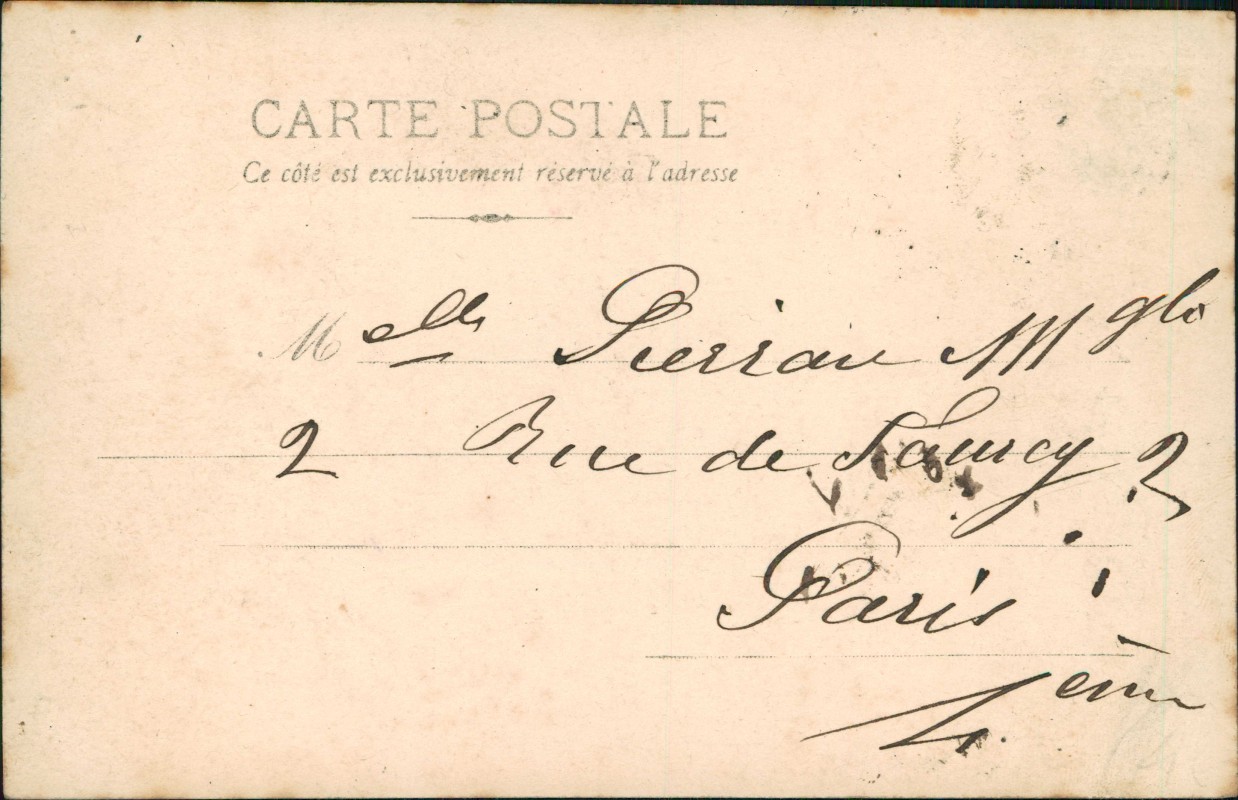 CARTE POSTALE
Ce côté est exclusivement réservé à l'adresse
Melle Pierrau
2 Rue de 2
Paris
4ème